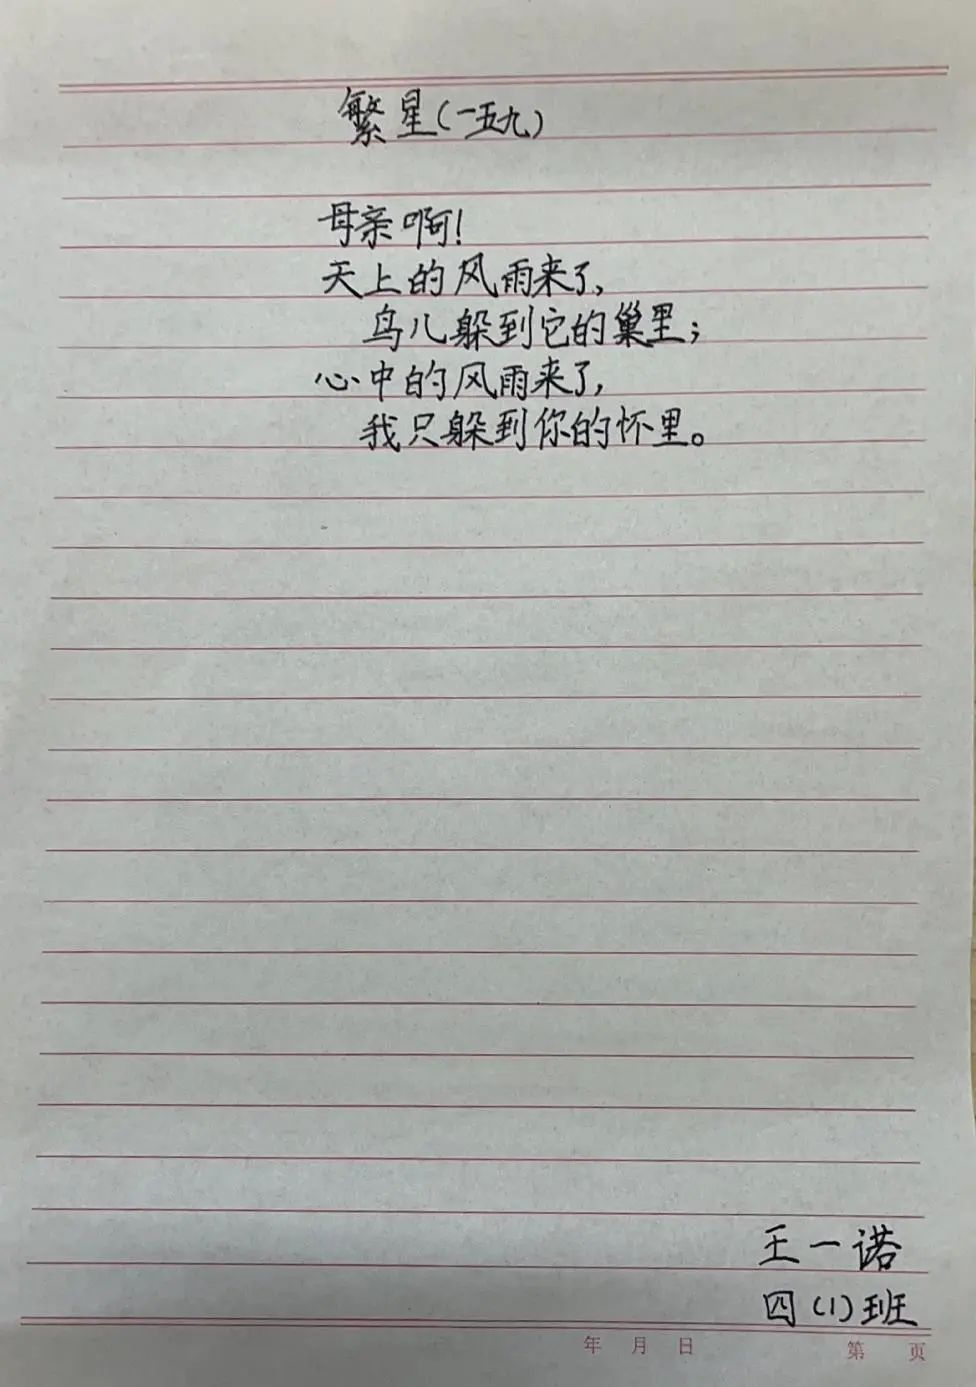 繁星(一五九)
母亲啊!
天上的风雨来了,
鸟儿躲到它的巢里;
心中的风雨来了,
我只躲到你的怀里。
王一诺
四(1)班
年 月 日 第 页